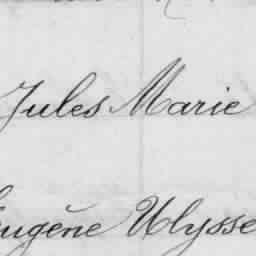 Jules Marie
Eugène Ulysse